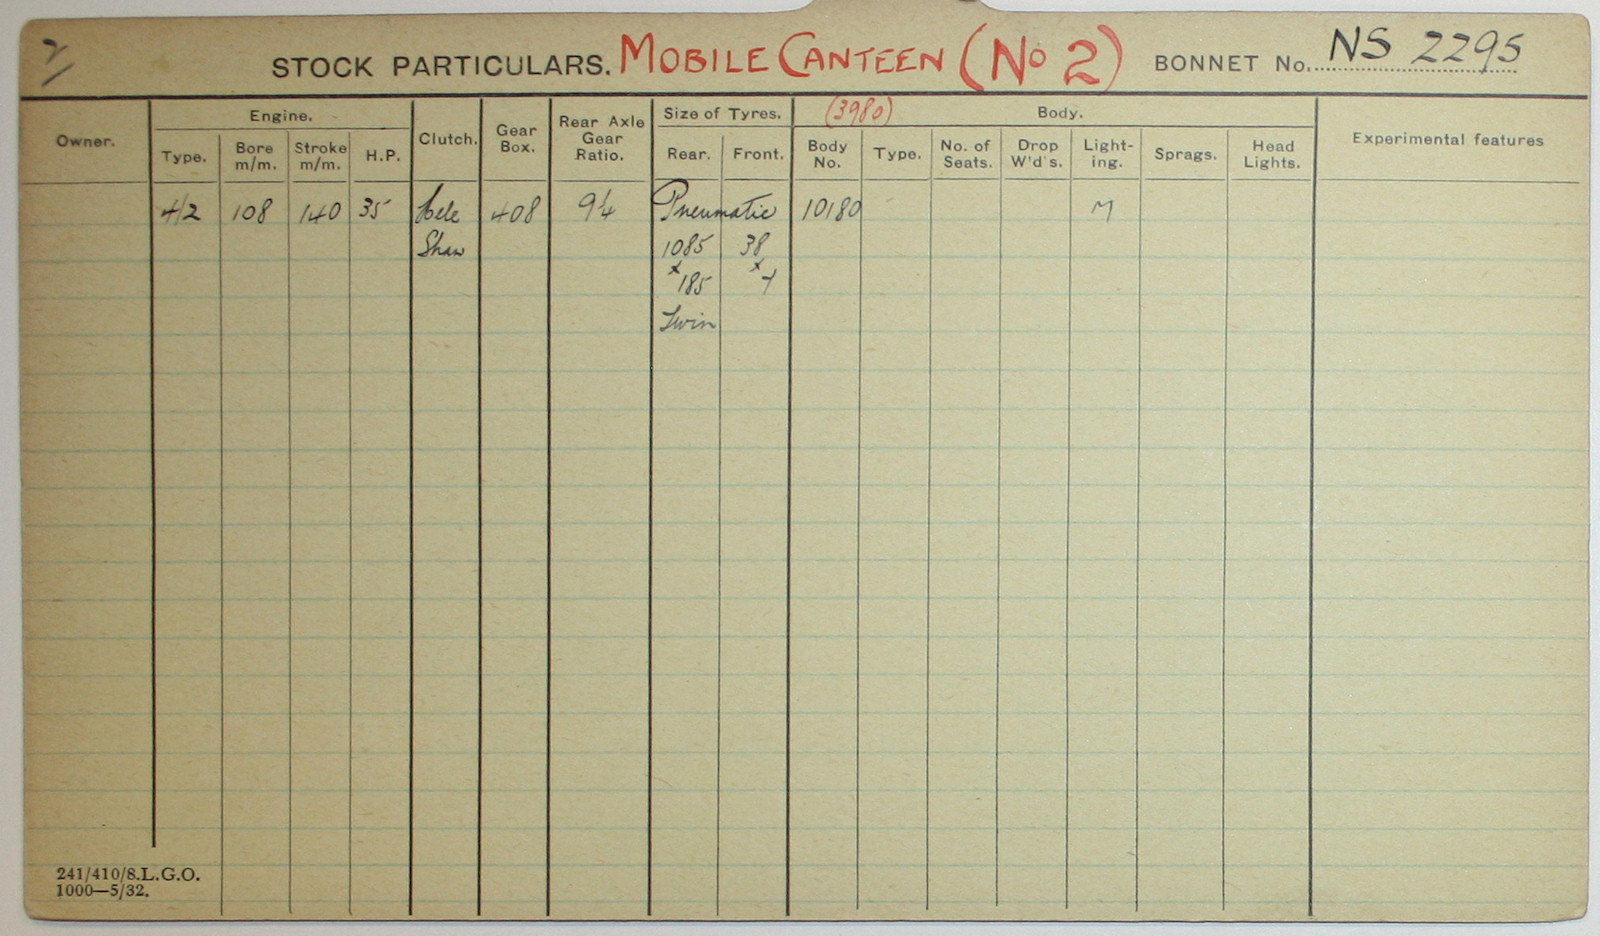 STOCK PARTICULARS. MOBILE CANTEEN (No 2) BONNET No. NS 2295
Owner. Engine. Clutch. Gear Box. Rear Axle Gear Ratio. Size of Tyres. (3980) Body. Experimental features
Type. Bore m/m. Stroke m/m. H.P. Rear. Front. Body No. Type. No. of Seats. Drop W'd's. Light-ing. Sprags. Head Lights.
4/2 108 140 35 Hele 408 9¼ Pneumatic 10180 M
Shaw 1085 38
x 185 x 7
Twin
241/410/8.L.G.O.
1000—5/32.